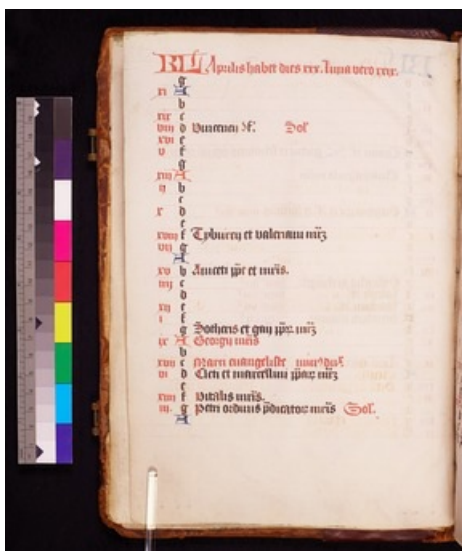 KL Aprilis habet dies xxx. Luna vero xxix.
g
xi A
b
xix c
viii d Vincencii Sol
xvi e
v f
g
xiii A
ii b
c
x d
e
xviii f Tyburcij et valeriani mrm
vii g
A
xv b Aniceti ppe et mris.
iiii c
d
xii e
i f
g Sotheris et gaij
ix A Georgij mris
b
xvii c Marci euangeliste
vi d Cleti et marcellini
e
xiiii f Vitalis mris.
iii g Petri ordinis mris Sol.
A